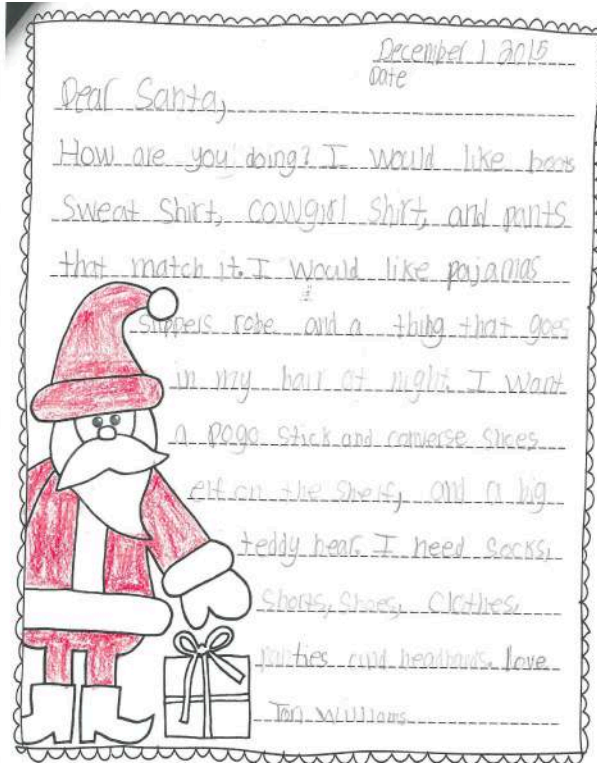 December 1 2015
Date
Dear Santa,
How are you doing? I would like boots
Sweat Shirt, cowgirl Shirt, and pants
that match it. I would like pajamas
slippers robe and a thing that goes
in my hair at night. I want
a pogo stick and converse shoes
elf on the shelf, and a big
teddy bear. I need socks,
shorts, shoes, clothes,
panties and headbands. love
Tori Williams